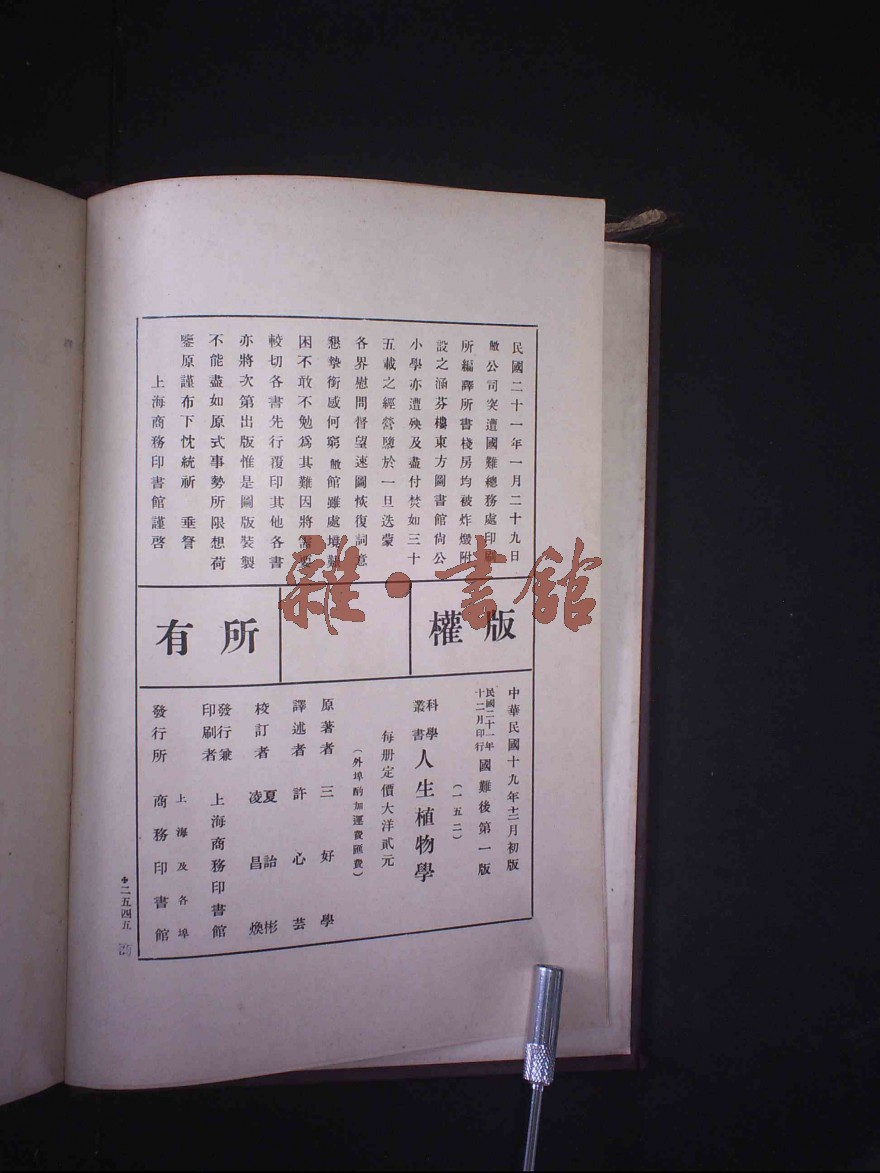 民國二十一年一月二十九日
敝公司突遭國難總務處印刷
所編譯所書棧房均被炸燬附
設之涵芬樓東方圖書館尙公
小學亦遭殃及盡付焚如三十
五載之經營隳於一旦迭蒙
各界慰問督望速圖恢復詞意
懇摯銜感何窮敝館雖處境艱
困不敢不勉爲其難因將需要
較切各書先行覆印其他各書
亦將次第出版惟是圖版裝製
不能盡如原式事勢所限想荷
鑒原謹布下忱統祈 垂詧
上海商務印書館謹啓
版權
所有
雜·書館
中華民國十九年十二月初版
民國二十一年十二月印行 國難後第一版
(一五二)
科學叢書 人生植物學
每册定價大洋貳元
(外埠酌加運費匯費)
原著者 三好學
譯述者 許心芸
校訂者 夏詒彬 凌昌煥
發行兼印刷者 上海商務印書館
發行所 上海及各埠 商務印書館
二五四五